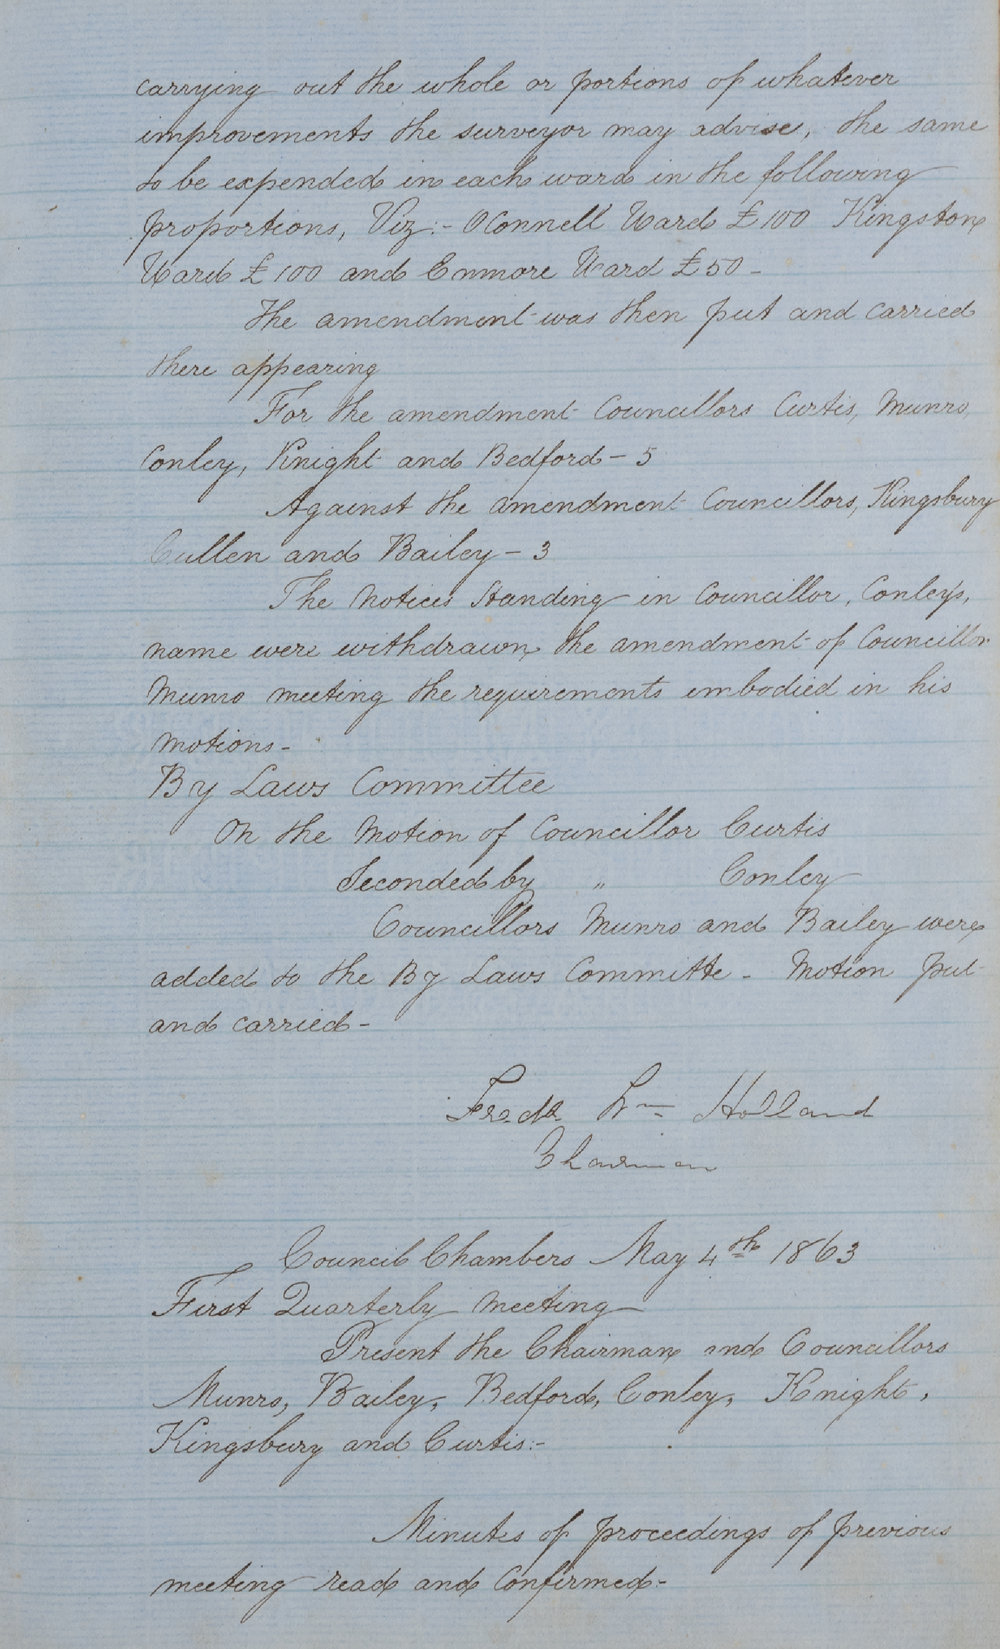 carrying out the whole or portions of whatever
improvements the surveyor may advise, the same
to be expended in each ward in the following
proportions, Viz:- OConnell Ward £100 Kingston
Ward £100 and Enmore Ward £50-
The amendment was then put and carried
there appearing
For the amendment Councillors Curtis, Munro,
Conley, Knight and Bedford - 5
Against the amendment Councillors, Kingsbury
Cullen and Bailey - 3
The Notices Standing in Councillor, Conley's,
name were withdrawn, the amendment of Councillor
Munro meeting the requirements embodied in his
motions-
By Laws Committee
On the Motion of Councillor Curtis
Seconded by " Conley
Councillors Munro and Bailey were
added to the By Laws Committe - Motion put
and carried-
Fredk Wm Holland
Chairman
Council Chambers May 4th 1863
First Quarterly meeting
Present the Chairman and Councillors
Munro, Bailey, Bedford, Conley, Knight,
Kingsbury and Curtis:-
Minutes of proceedings of previous
meeting read and confirmed-